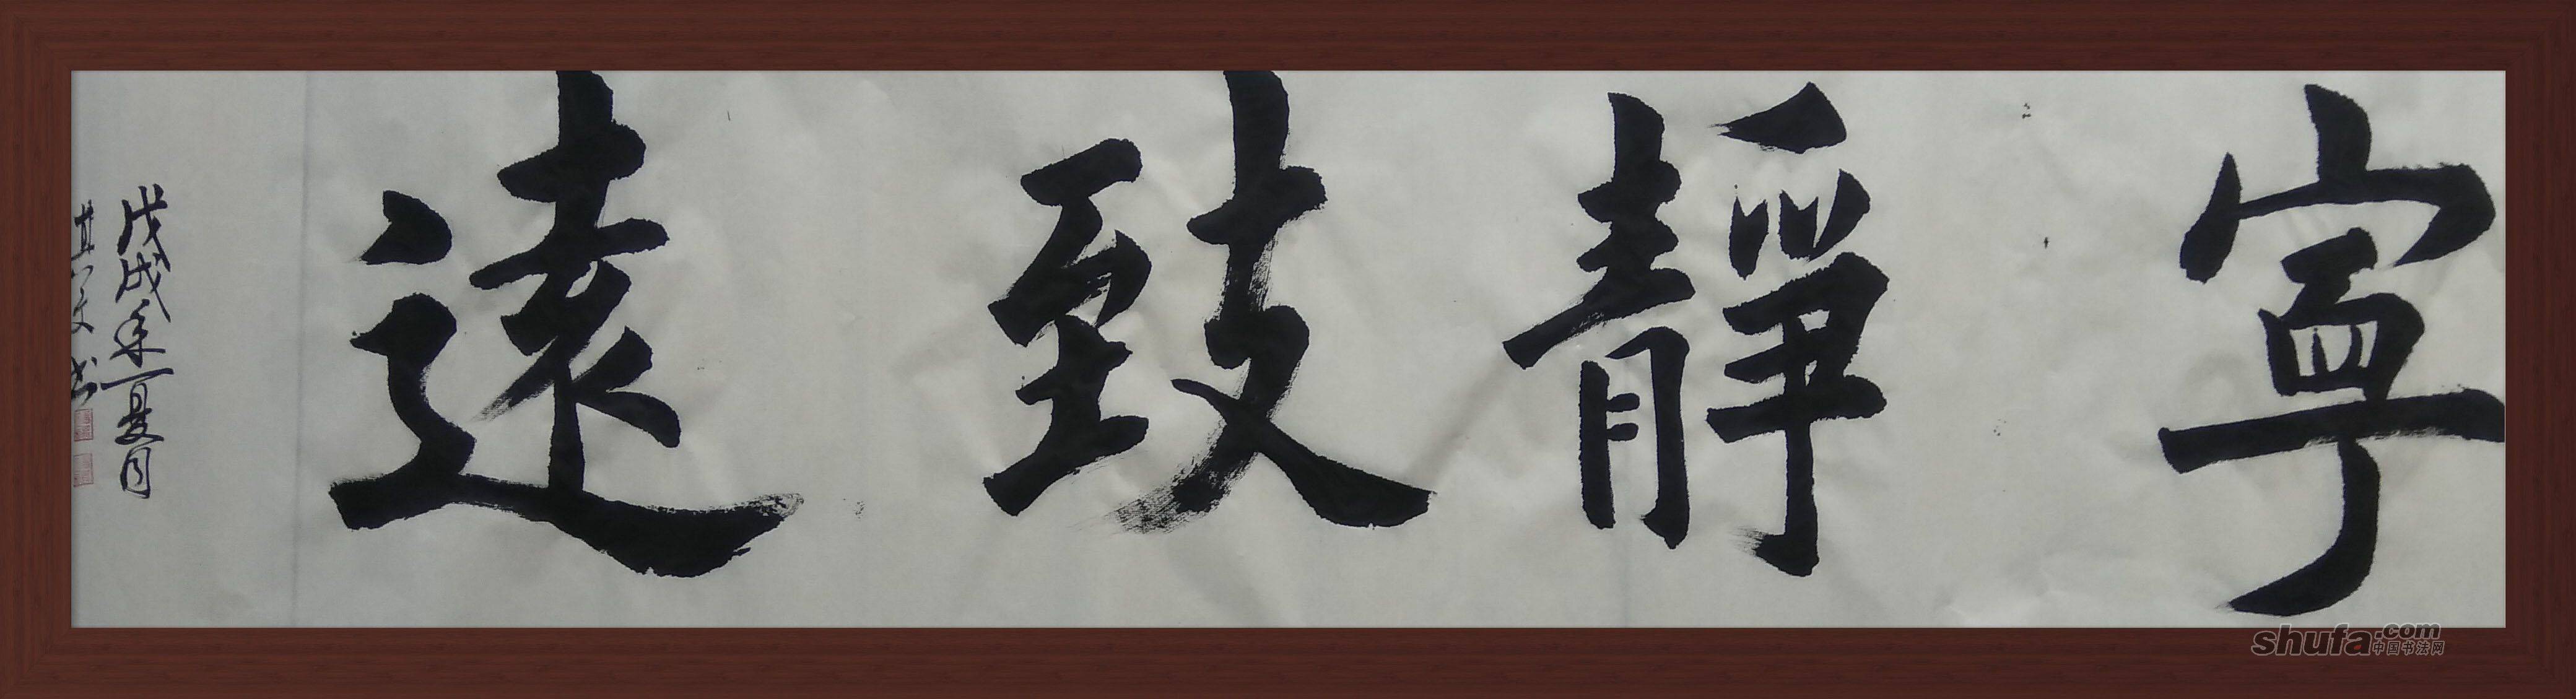 寧靜致遠
戊戌年夏月
shufa.com
中国书法网